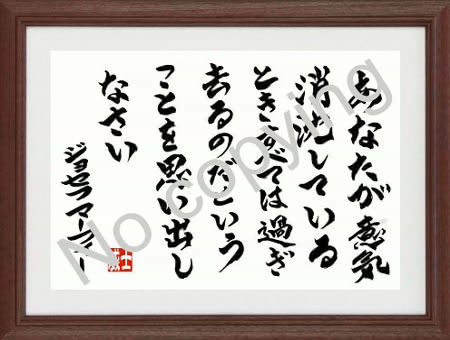 あなたが意気
消沈している
ときすべては過ぎ
去るのだという
ことを思い出し
なさい
ジョセフマーフィー
No copying